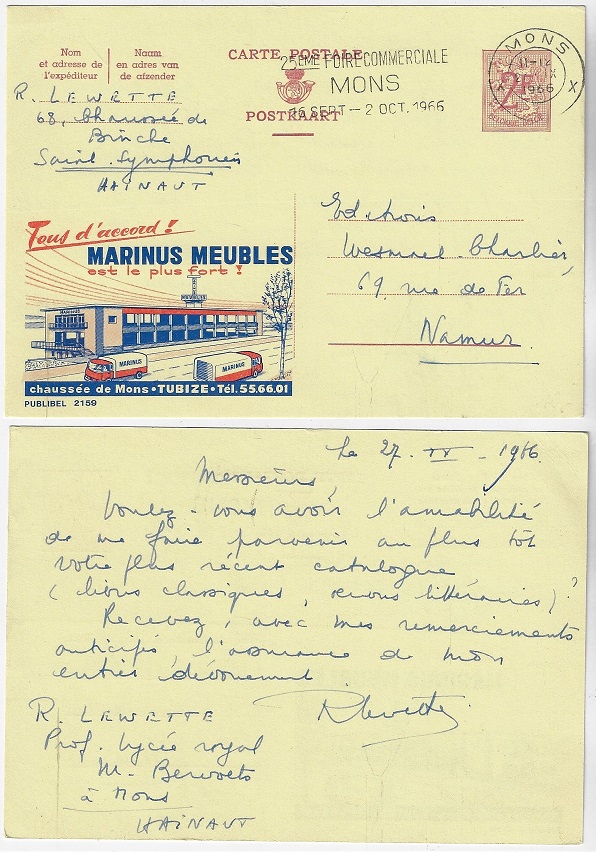 Nom
et adresse de
l'expéditeur
Naam
en adres van
de afzender
CARTE POSTALE
POSTKAART
25ÈME FOIRE COMMERCIALE
MONS
16 SEPT - 2 OCT. 1966
MONS
11-12
1966
X X
2F
R. LEWETTE
68, Chaussée de
Binche
Saint Symphorien
HAINAUT
Tous d'accord !
MARINUS MEUBLES
est le plus fort !
MARINUS
MEUBLES
MARINUS
MARINUS
chaussée de Mons • TUBIZE • Tél. 55.66.01
PUBLIBEL 2159
Editions
Wesmael-Charlier,
69, rue de Fer
Namur.
Le 27. IX. 1966.
Messieurs,
Voulez-vous avoir l'amabilité
de me faire parvenir au plus tôt
votre plus récent catalogue
(livres classiques, revues littéraires) ?
Recevez, avec mes remerciements
anticipés, l'assurance de mon
entier dévouement
RLewette
R. LEWETTE
Prof. Lycée royal
M. Bervoets
à Mons
HAINAUT